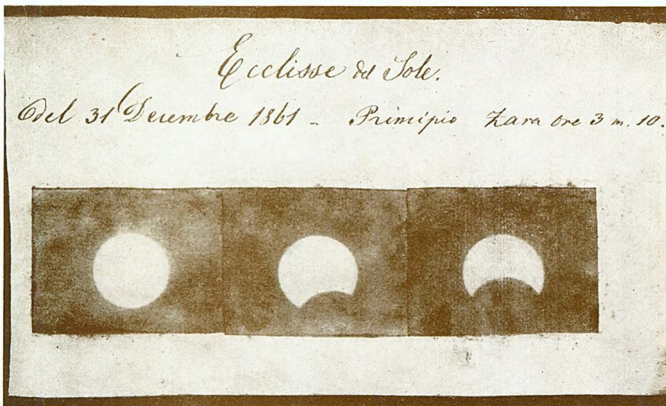 Ecclisse del Sole.
del 31 Decembre 1861 - Principio Zara ore 3 m. 10.